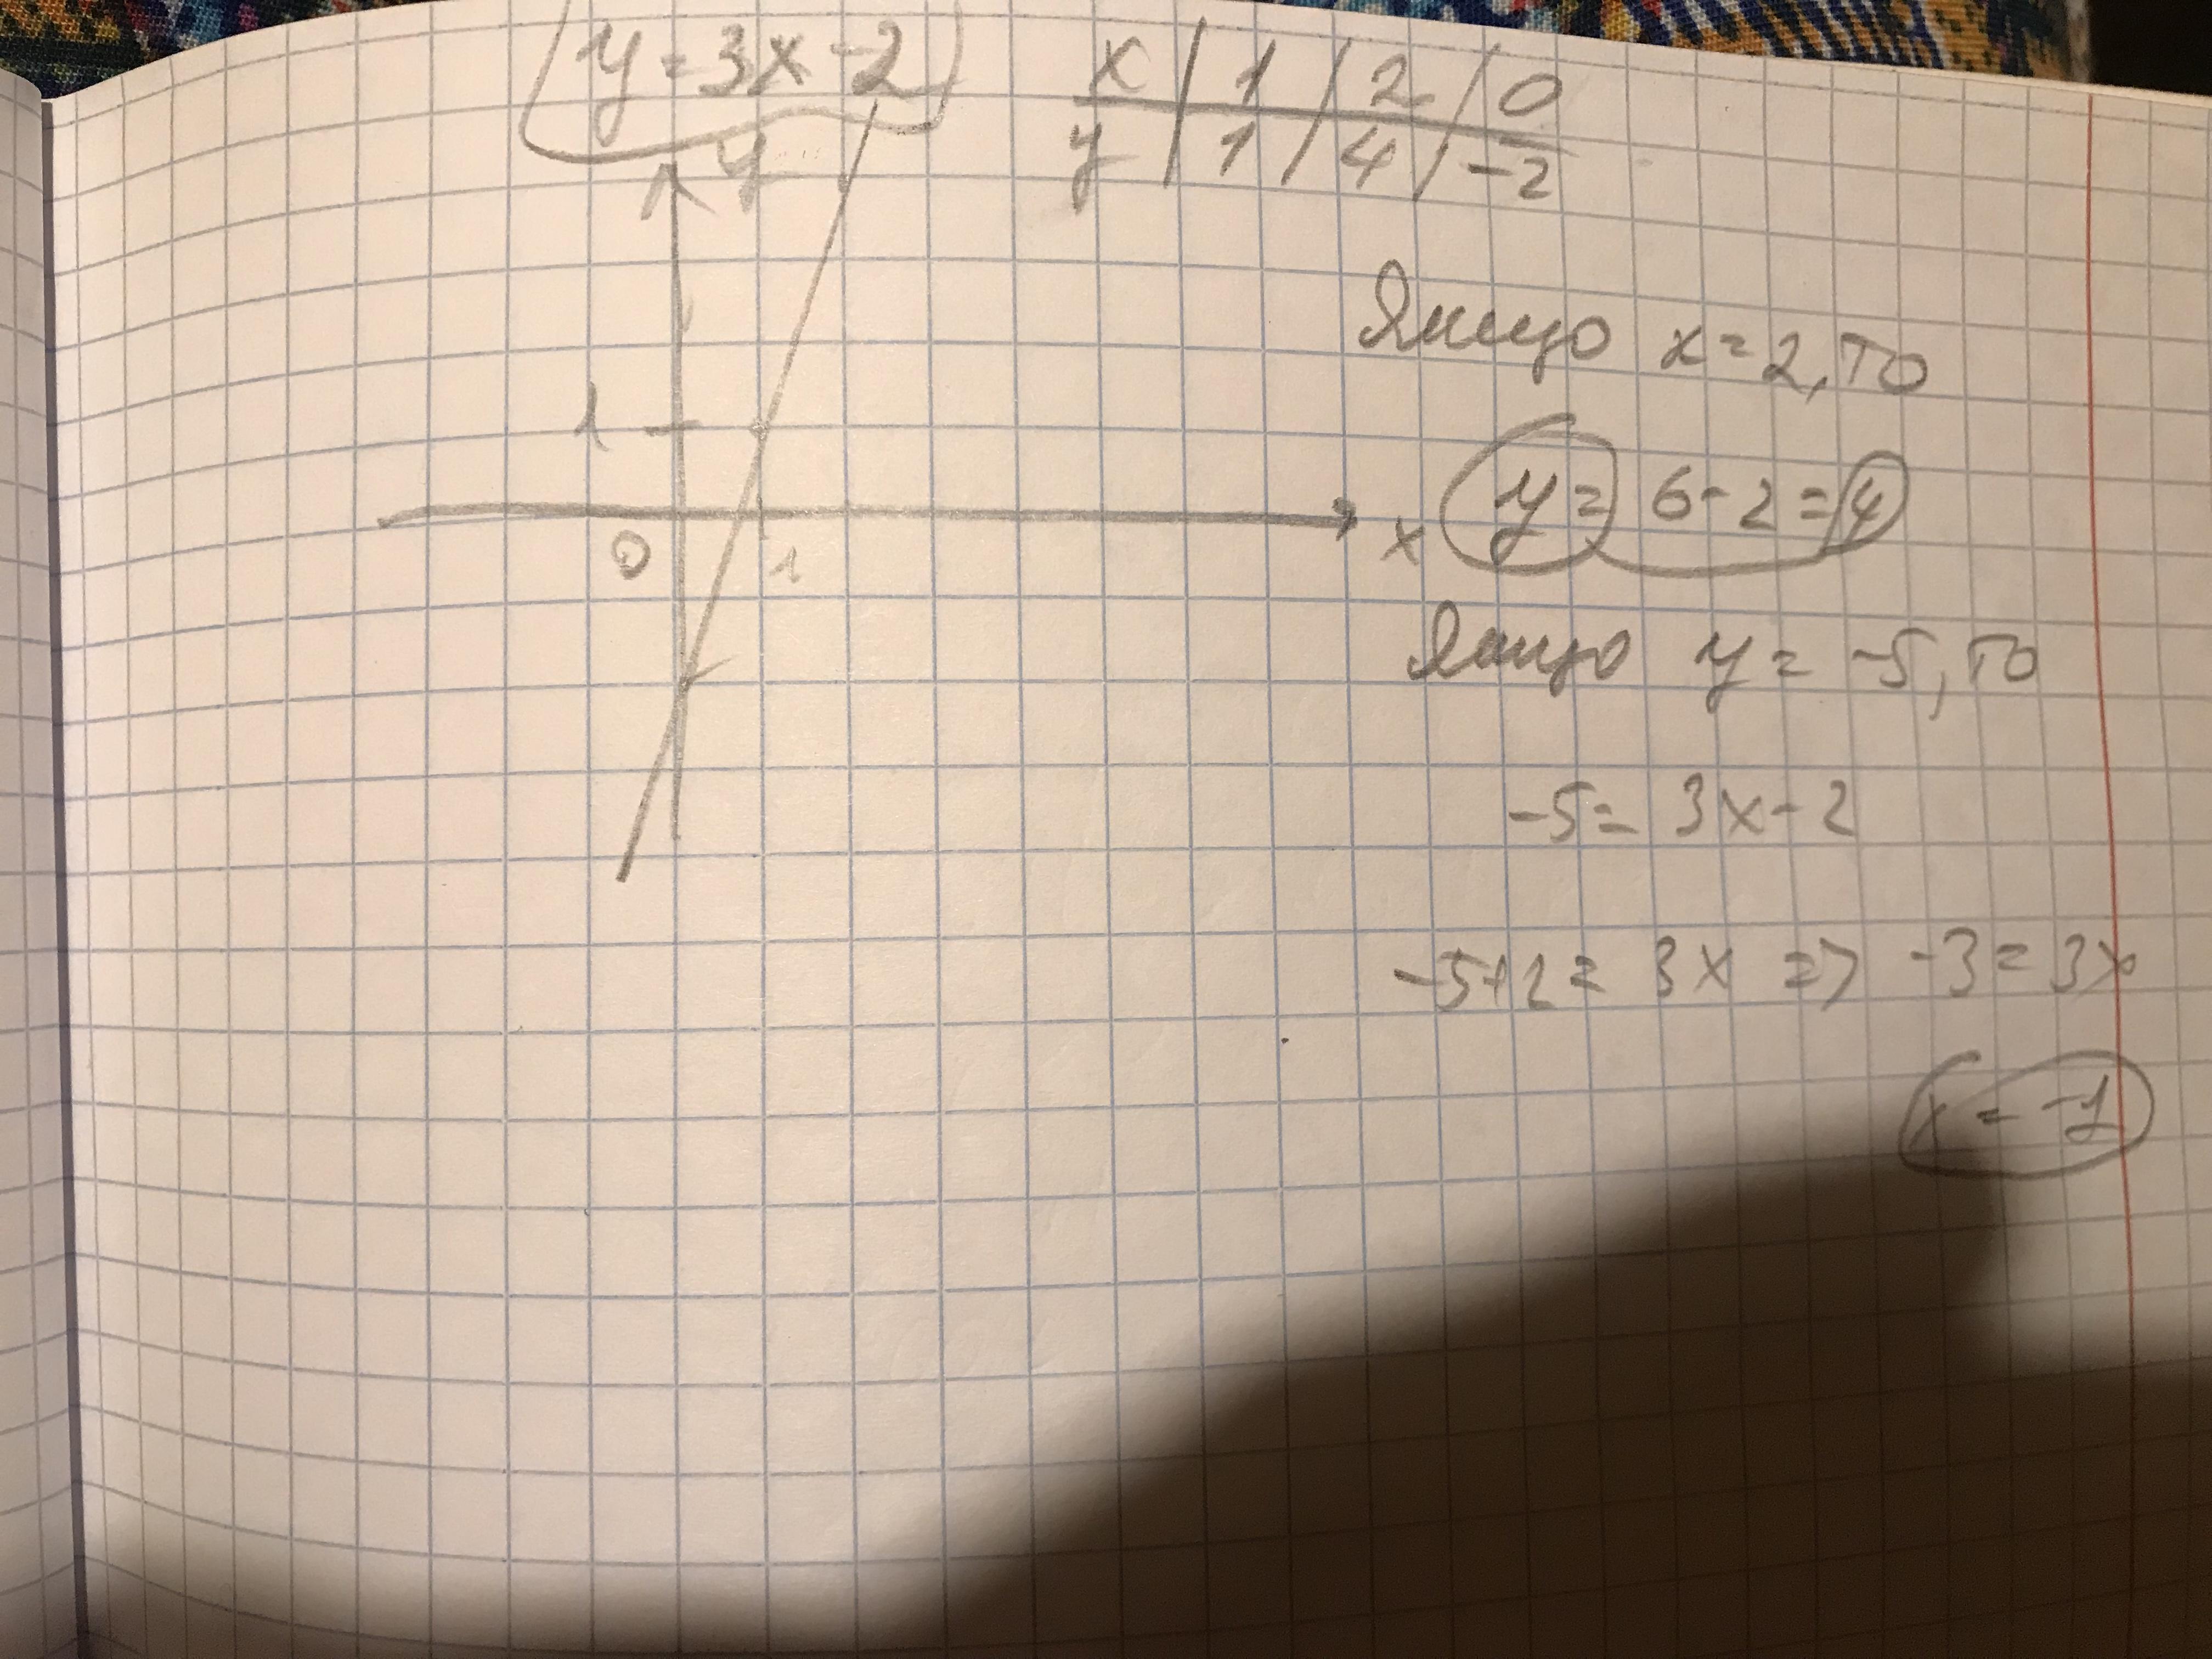 y = 3x - 2
x | 1 | 2 | 0
y | 1 | 4 | -2
y
1
0 1 x
Якщо x = 2, то
y = 6 - 2 = 4
Якщо y = -5, то
-5 = 3x - 2
-5+2 = 3x => -3 = 3x
x = -1